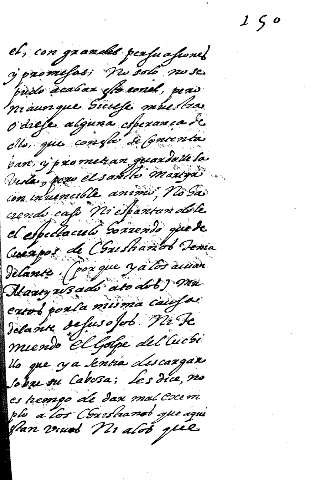 150
el, con grandes persuasiones
y promesas; No solo no se
pudo acabar esto con el, pero
Ni aun que diese muestra
o diese alguna esperança de
ello, que con esto se contenta
van, y prometian guardarle la
vida, pero el santo Martyr
con invencible animo, No ha
ciendo caso Ni espantandole
el espectaculo horrendo que de
cuerpos de Christianos tenia
delante (porque ya los avian
Martyrizado a todos) Mu
ertos por la misma causa
delante de sus ojos. Ni te
miendo el Golpe del cuchi
llo que ya sentia descargar
sobre su cabeza; les dice, no
es tiempo de dar mal exem
plo a los Christianos que aqui
estan vivos Ni a los que